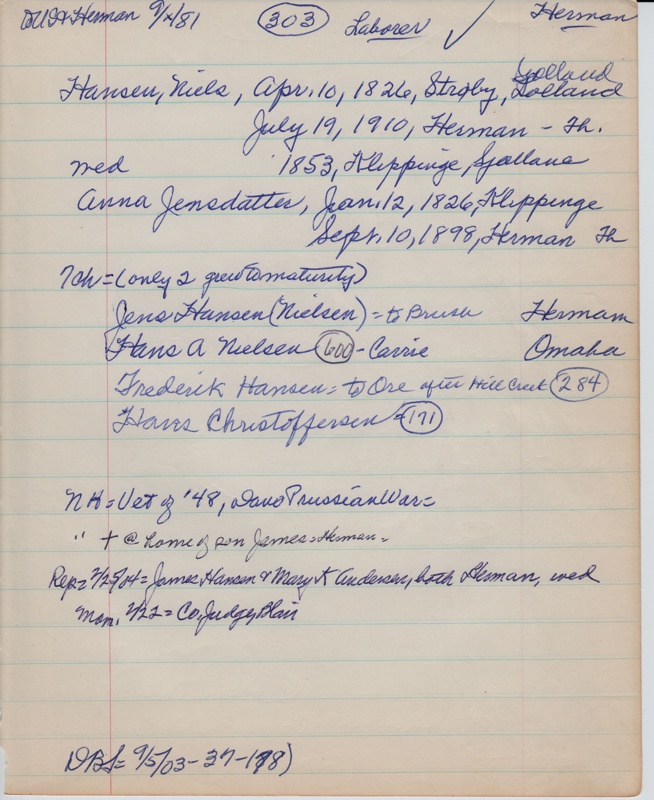 Herman 9/x/81 303 Laborer ✓ Herman
Sjolland
Hansen, Niels, Apr. 10, 1826, Strøby, Lolland
July 19, 1910, Herman - Th.
med 1853, Klippinge, Sjolland
Anna Jensdatter, Jan. 12, 1826, Klippinge
Sept. 10, 1898, Herman Th
7ch = (only 2 grew to maturity)
Jens Hansen (Nielsen) = to Brush Herman
Hans A Nielsen 600 - Carrie Omaha
Frederik Hansen = to Ore after Hill Creek 284
Hans Christoffersen = 171
NH = Vet of '48, Dano Prussian War =
" + @ home of son James = Herman =
Rep = 2/25/04 = James Hansen & Mary K Andersen, both Herman, wed
Mon, 2/22 = Co, Judge, Blair
DBS = 9/5/03 - 37 - 198)